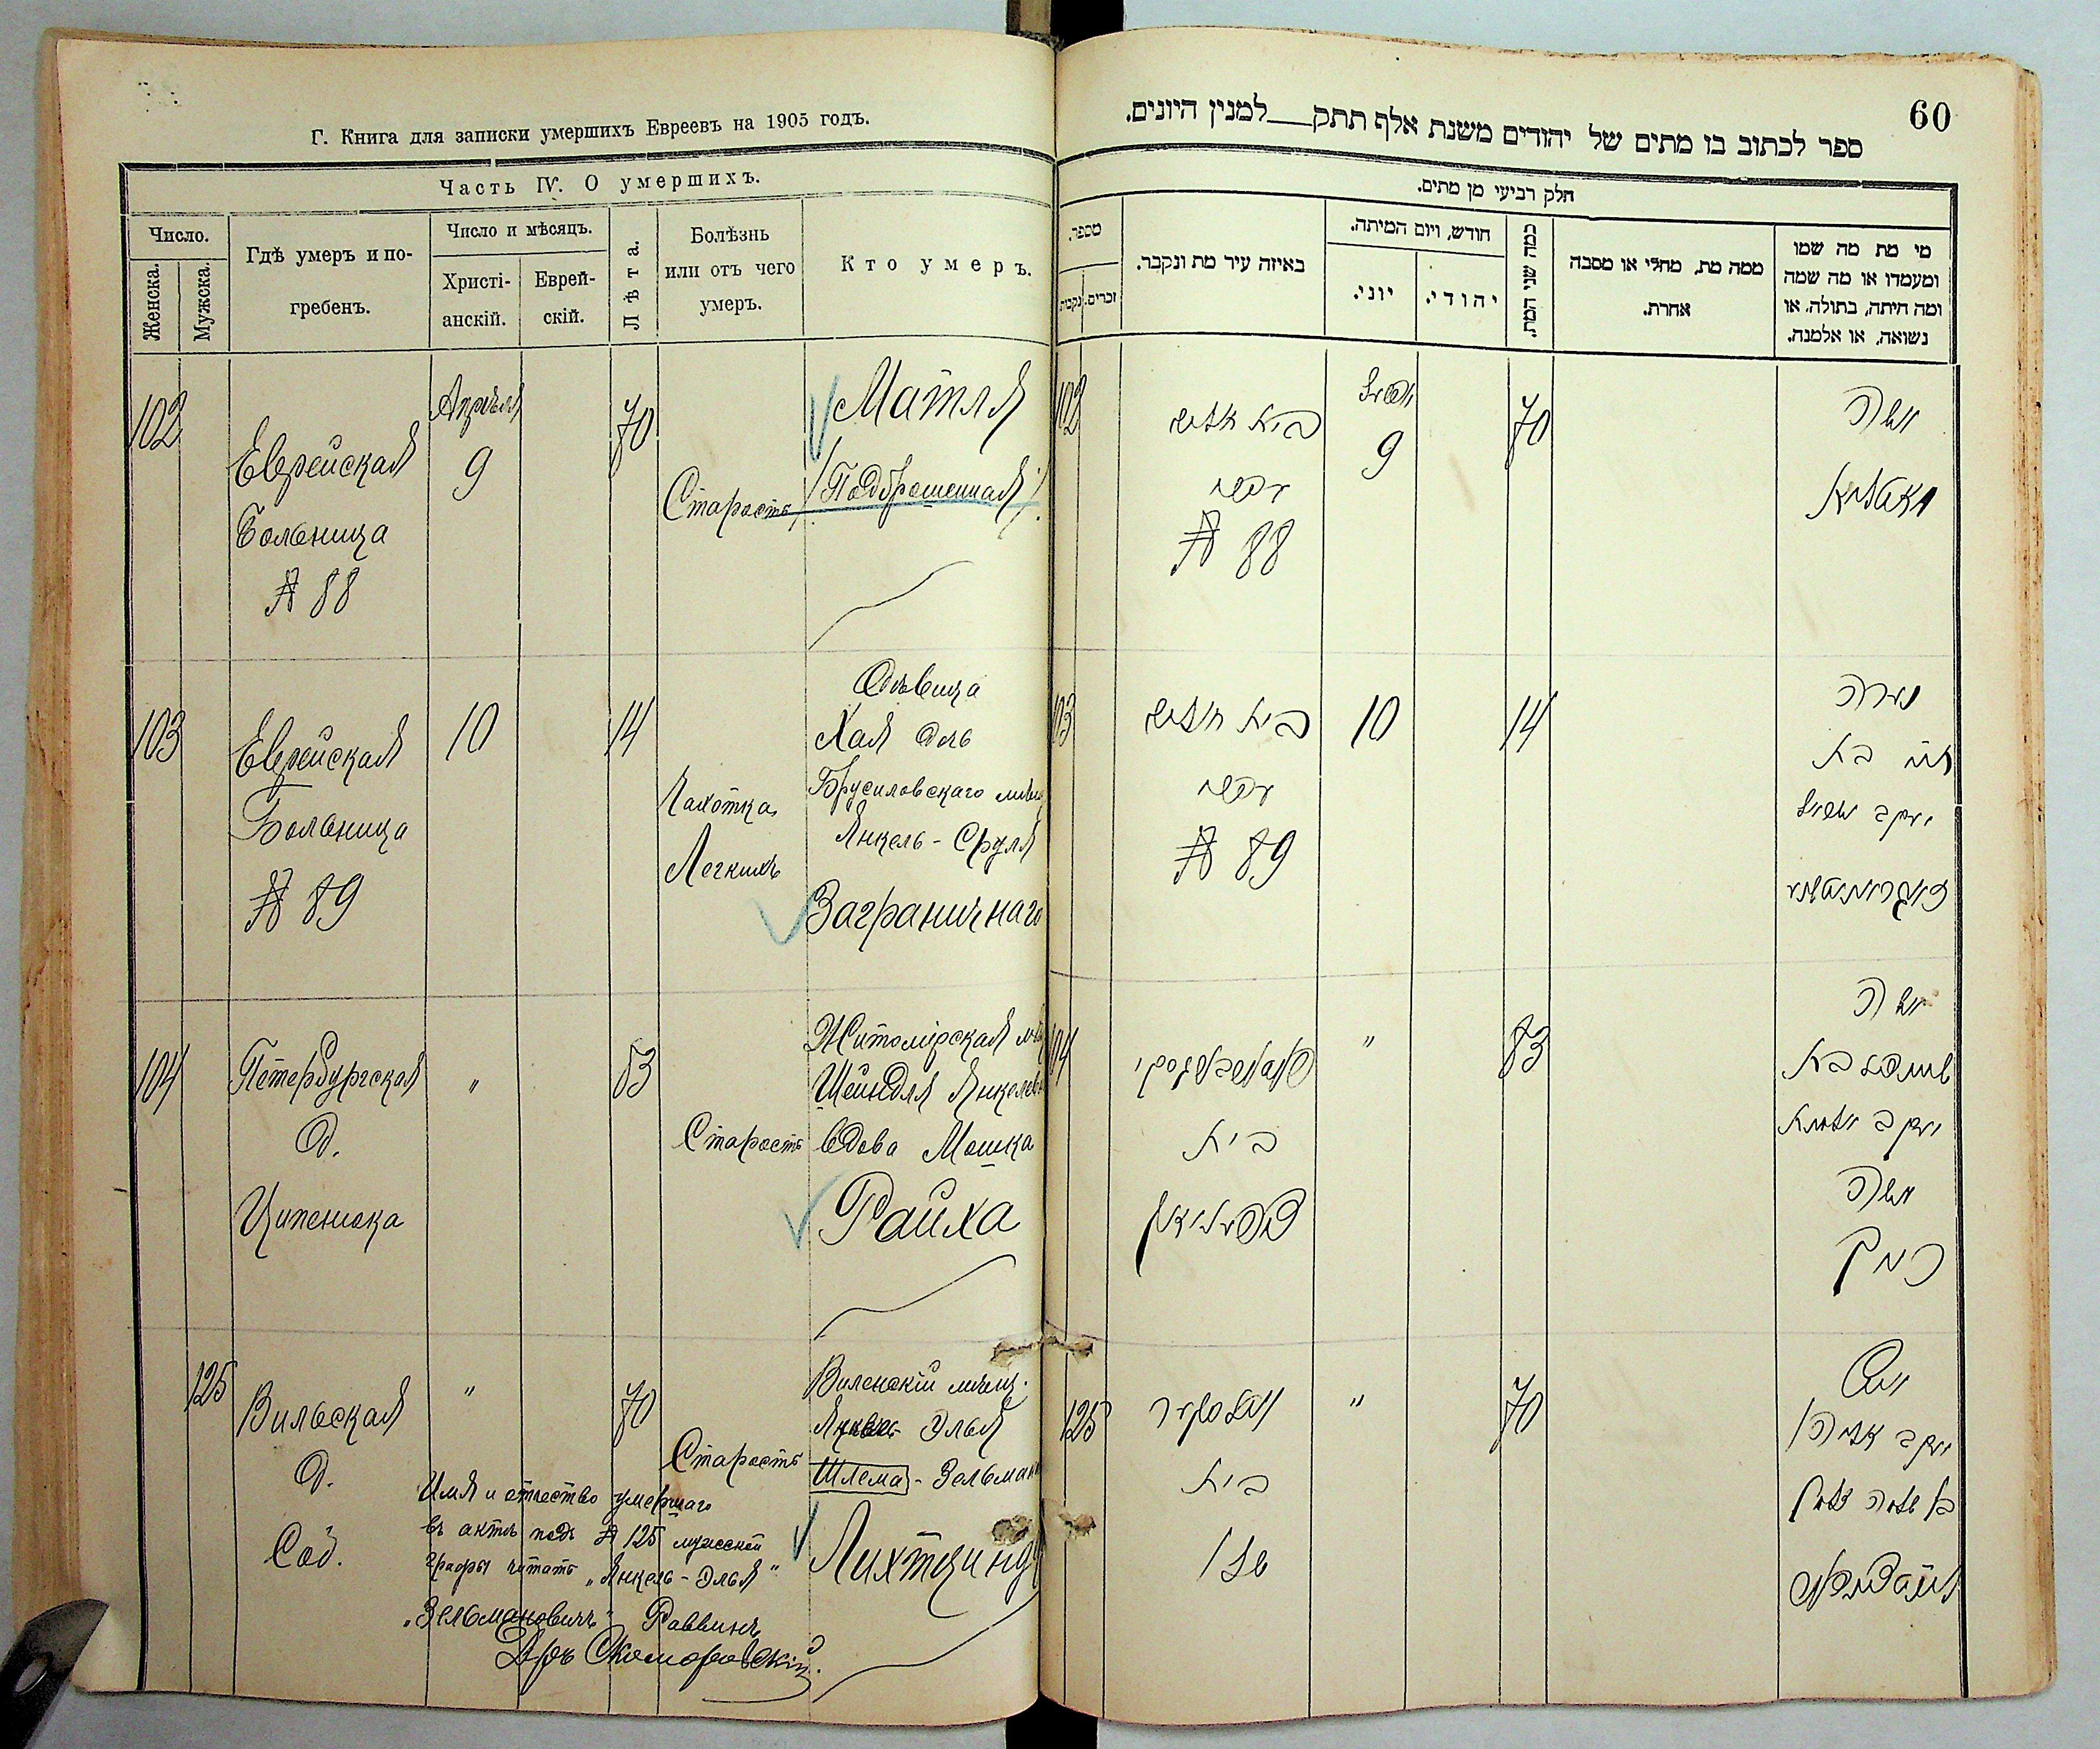 Г. Книга для записки умершихъ Евреевъ на 1905 годъ.
Часть IV. О умершихъ.
Число.
Женска.
Мужска.
Гдѣ умеръ и по-
гребенъ.
Число и мѣсяцъ.
Христі-
анскій.
Еврей-
скій.
Лѣта.
Болѣзнь
или отъ чего
умеръ.
Кто умеръ.
102
Еврейская
Больница
№ 88
Апрѣля
9
70
Старость
Матля
/Подброшенная/.
103
Еврейская
Больница
№ 89
10
14
Чахотка
Легкихъ
Дѣвица
Хая дочь
Брусиловскаго мѣщ
Янкель-Сруля
Заграничнаго
104
Петербургская
д.
Ципенюка
"
83
Старость
Житомірская мѣщ
Шейндля Янкелев
вдова Мошка
Райха
125
Вильская
д.
Сод.
"
70
Старость
Виленскій мѣщ.
Элья
Шлема - Зельман
Лихтцинд
Имя и отчество умершаго
въ актѣ подъ № 125 мужской
графы читать „Янкель-Элья"
„Зельмановичъ" Раввинъ
Д-ръ Скоморовскій.
60
ספר לכתוב בו מתים של יהודים משנת אלף תתק___למנין היונים.
חלק רביעי מן מתים.
מספר.
נקבות
זכרים.
באיזה עיר מת ונקבר.
חודש, ויום המיתה.
יוני.
יהודי.
כמה שני המת.
ממה מת, מחלי או מסבה
אחרת.
מי מת מה שמו
ומעמדו או מה שמה
ומה היתה, בתולה, או
נשואה, או אלמנה.
102
בית חולים
№ 88
אפריל
9
70
אשה
מאטליא
103
בית חולים
№ 89
10
14
נערה
חי' בת
יעקב ישראל
104
בית
"
83
אשה
שיינדל בת
יעקב
אשה
רייך
125
בית
"
70
איש
יעקב אליהו
בן שלמה זלמן